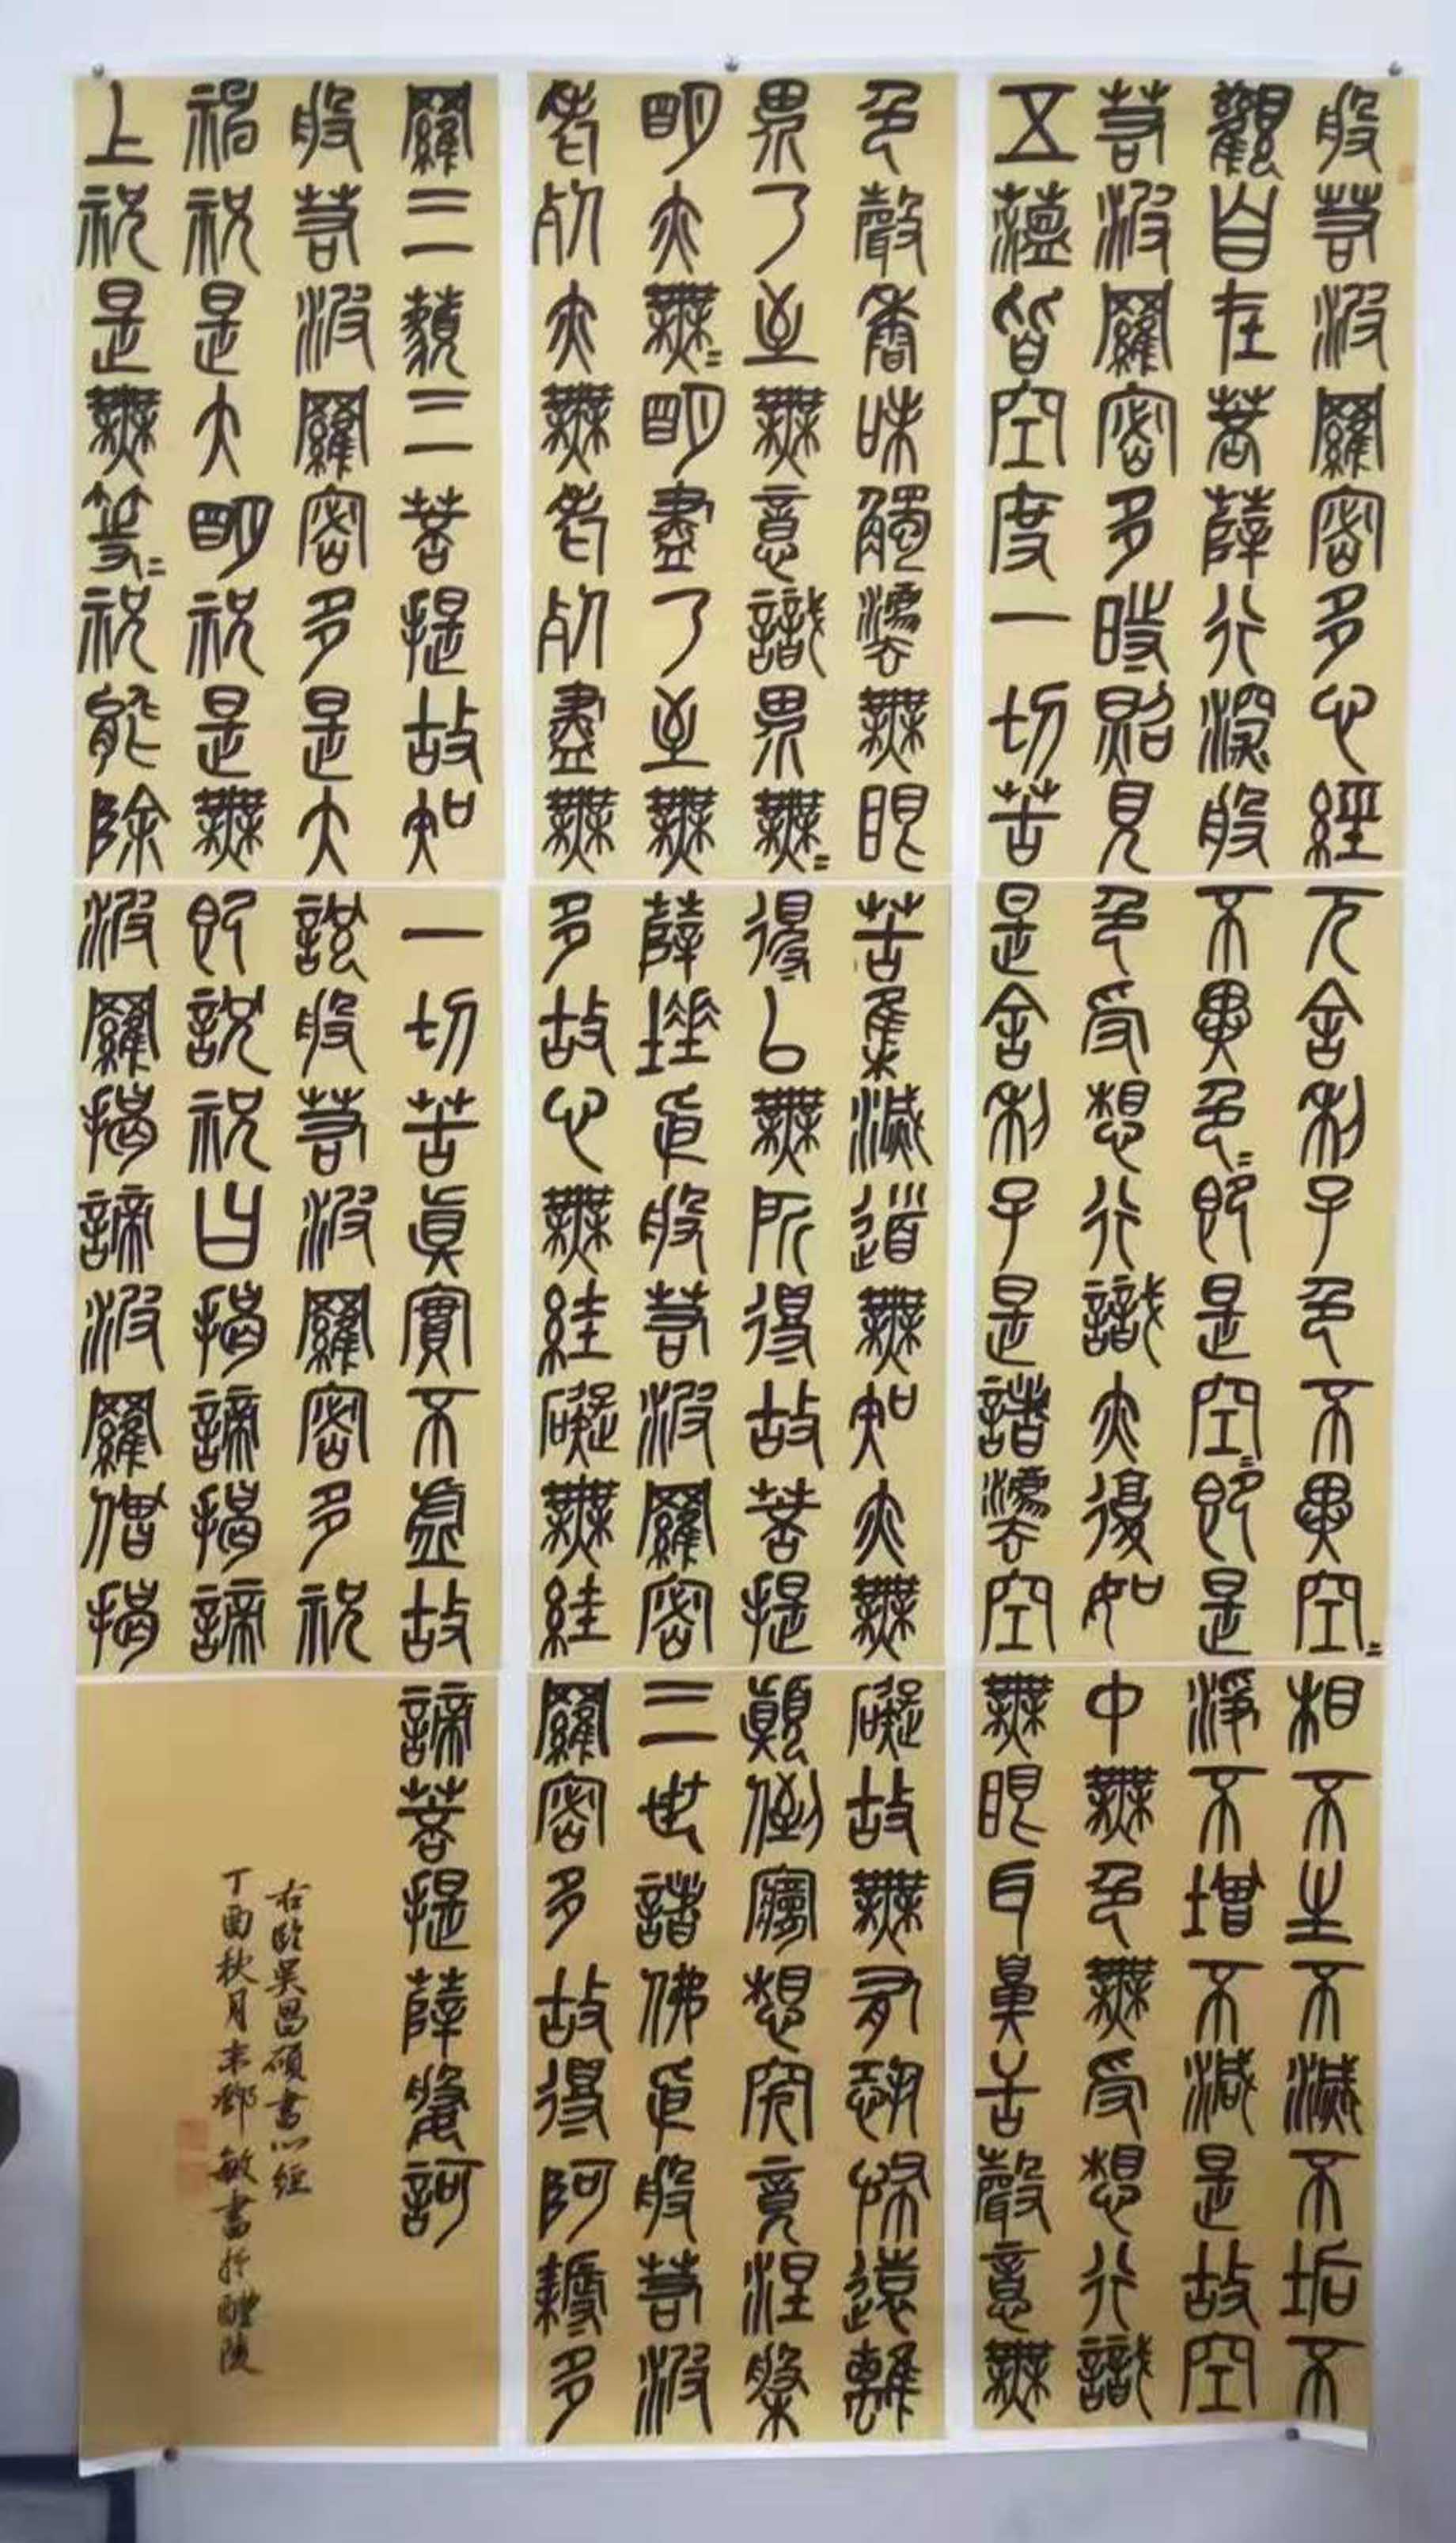 般若波羅密多心經
觀自在菩薩行深般
若波羅密多時照見
五蘊皆空度一切苦
厄舍利子色不異空=
不異色=即是空=即是
色受想行識亦復如
是舍利子是諸灋空
相不生不滅不垢不
淨不增不減是故空
中無色無受想行識
無眼耳鼻舌聲意無
色聲香味觸灋無眼
界乃至無意識界無=
明亦無=明盡乃至無
老死亦無老死盡無
苦集滅道無知亦無
得以無所得故菩提
薩埵依般若波羅密
多故心無絓礙無絓
礙故無有恐怖遠離
顛倒夢想究竟涅槃
三世諸佛依般若波
羅密多故得阿耨多
羅三藐三菩提故知
般若波羅密多是大
神祝是大明祝是無
上祝是無等=祝能除
一切苦真實不虛故
說般若波羅密多祝
即說祝曰揭諦揭諦
波羅揭諦波羅僧揭
諦菩提薩婆訶
右臨吳昌碩書心經
丁酉秋月末鄧敏書於醴陵